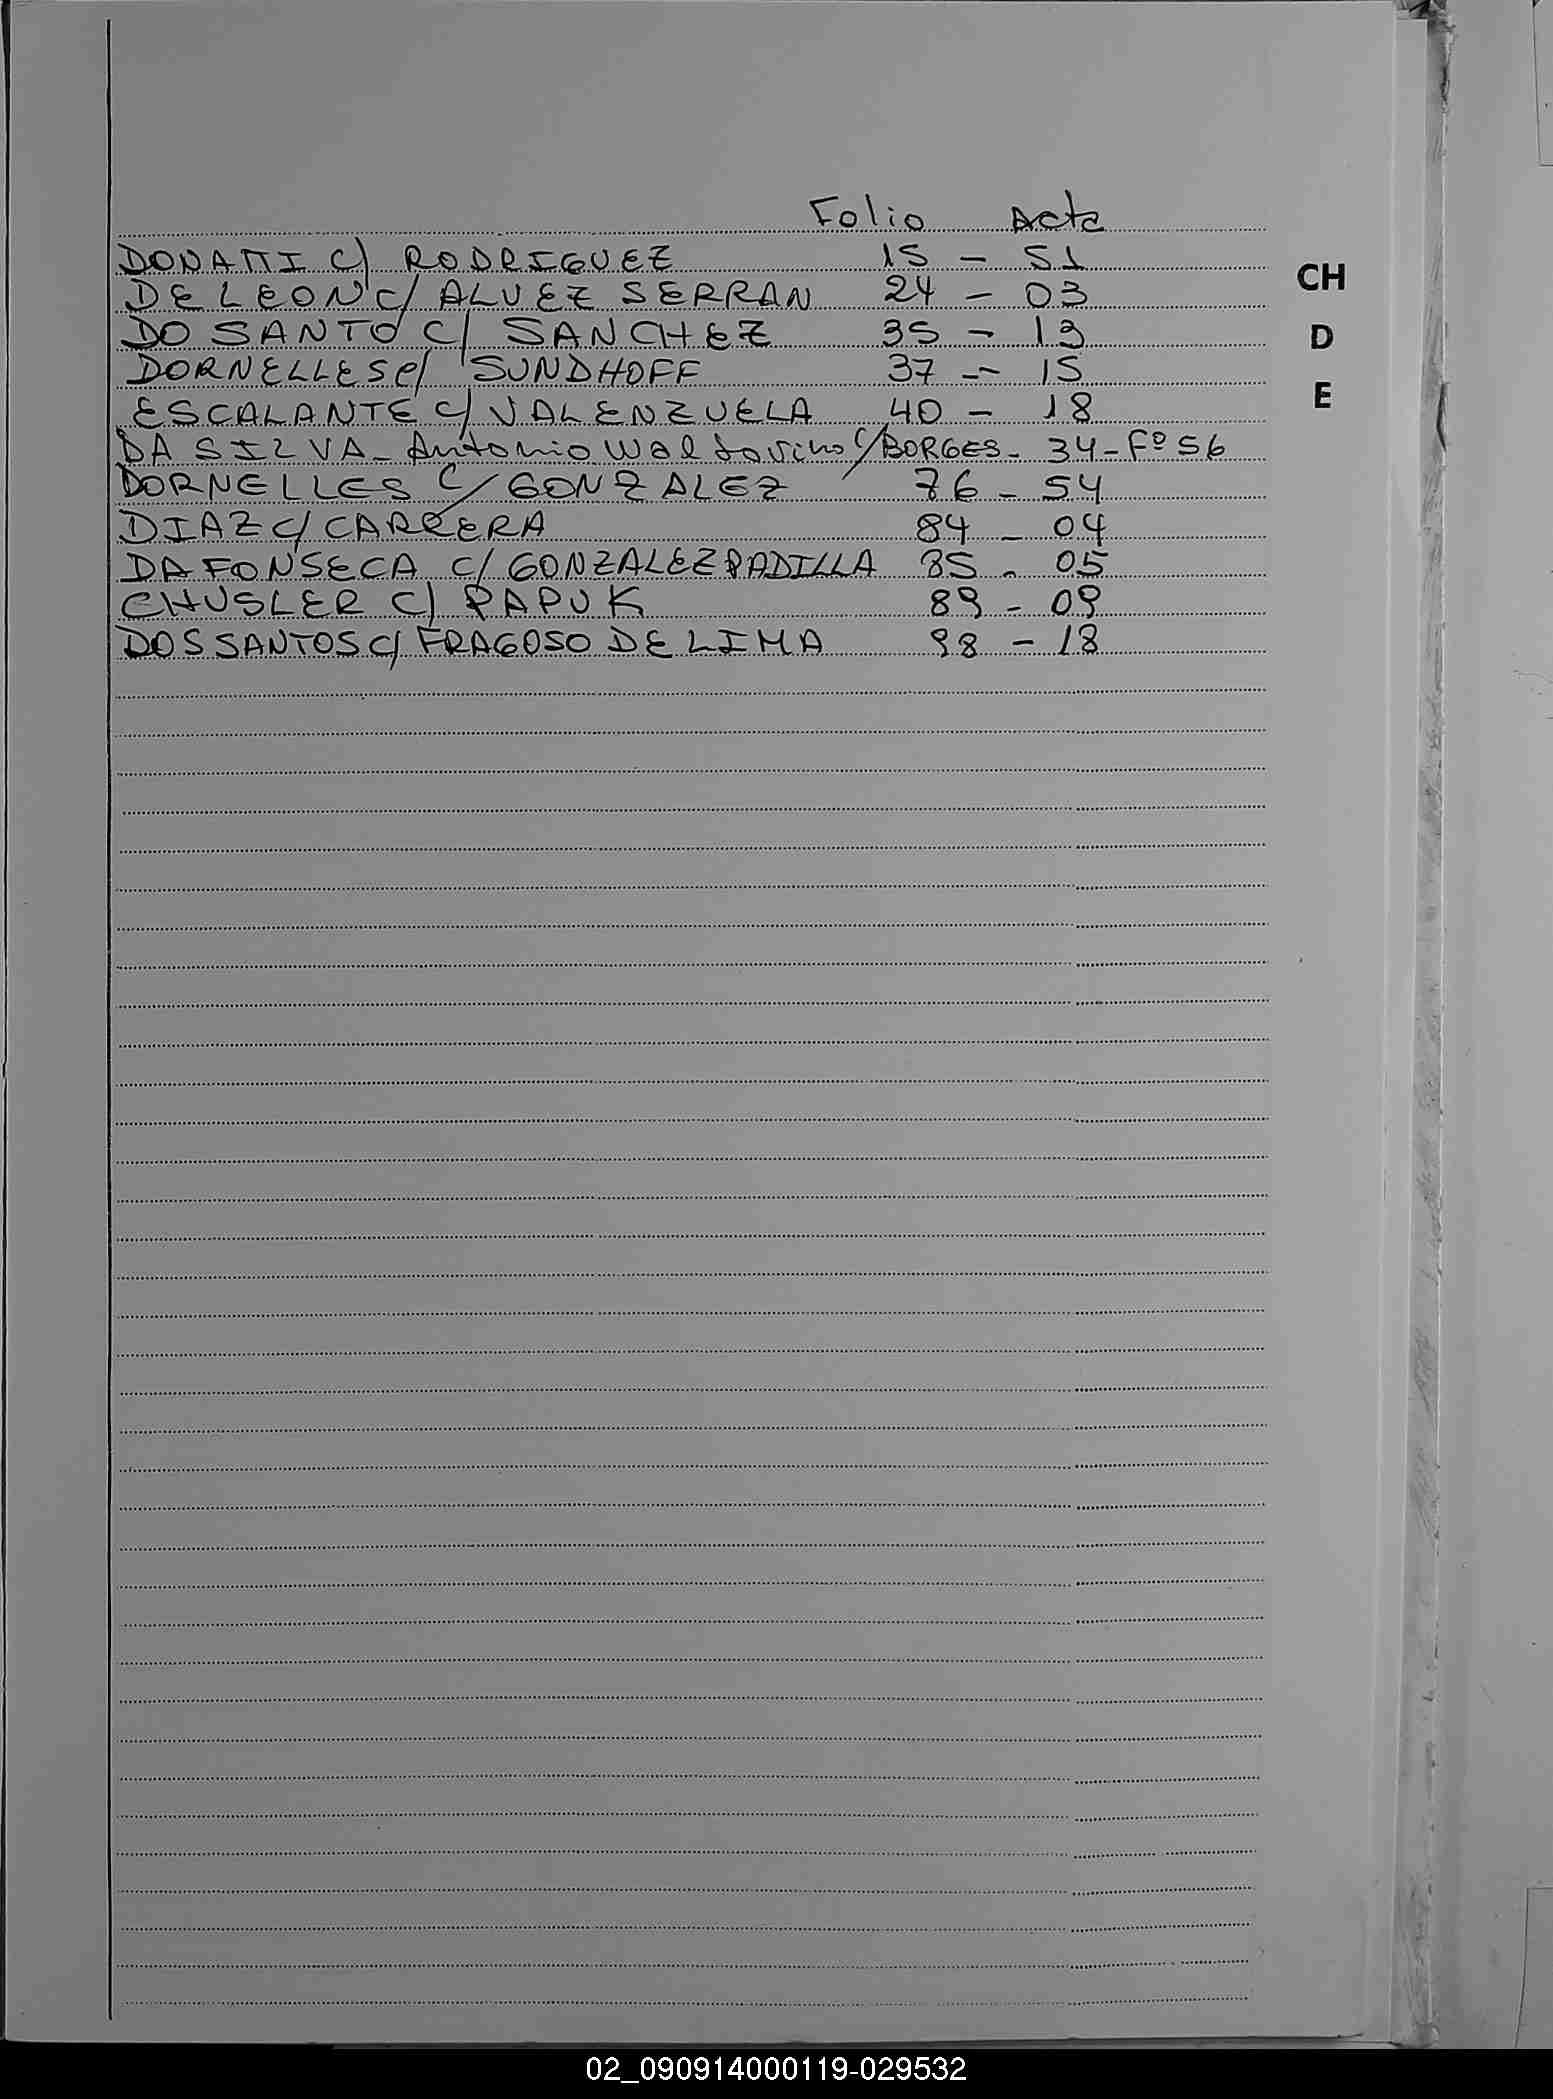 Folio Acta
DONATTI C/ RODRIGUEZ 15 - 51
DE LEON C/ ALVEZ SERRAN 24 - 03
CH
DO SANTO C/ SANCHEZ 35 - 13
D
DORNELLES C/ SUNDHOFF 37 - 15
E
ESCALANTE C/ VALENZUELA 40 - 18
DA SILVA - Antonio C/ BORGES - 34 - Fº 56
DORNELLES C/ GONZALEZ 76 - 54
DIAZ C/ CARRERA 84 - 04
DA FONSECA C/ GONZALEZ PADILLA 85 - 05
CHUSLER C/ PAPUK 89 - 09
DOS SANTOS C/ FRAGOSO DE LIMA 98 - 18
02_090914000119-029532